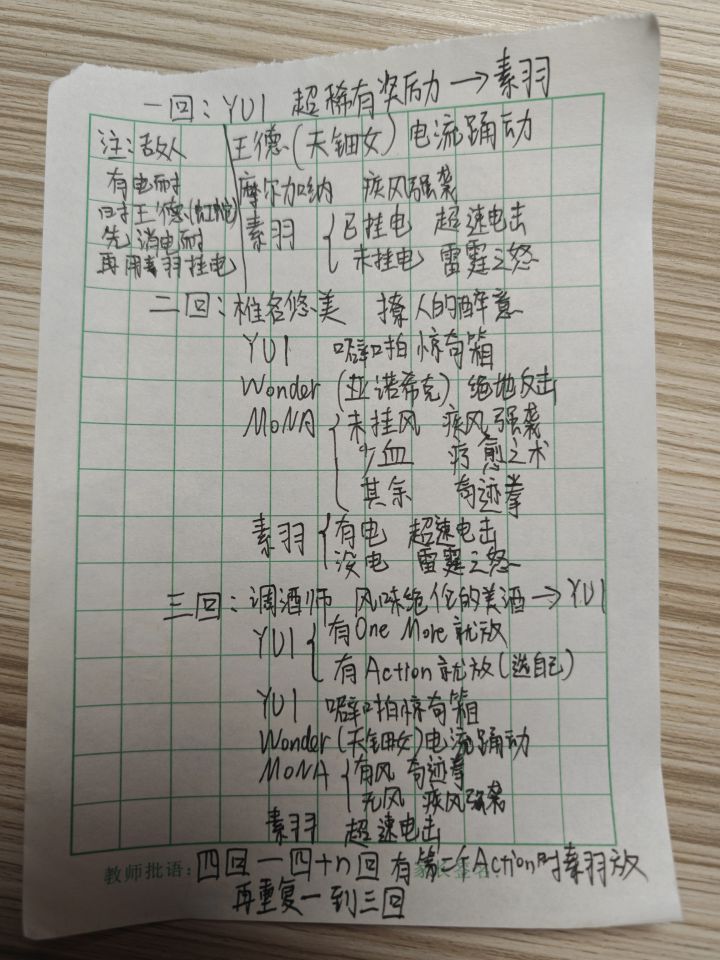 一回：YUI 超稀有奖励→素羽
注：敌人有电耐
时王德(红蛇)
先消电耐
再用素羽挂电
王德(天钿女) 电流踊动
摩尔加纳 疾风强袭
素羽 { 已挂电 超速电击
未挂电 雷霆之怒
二回：椎名悠美 撩人的醉意
YUI 噼啪惊奇箱
Wonder (亚诺希克) 绝地反击
MoNA { 未挂风 疾风强袭
少血 疗愈之术
其余 奇迹拳
素羽 { 有电 超速电击
没电 雷霆之怒
三回：调酒师 风味绝伦的美酒→YUI
YUI { 有One More就放
有Action就放(选自己)
YUI 噼啪惊奇箱
Wonder(天钿女)电流踊动
MoNA { 有风 奇迹拳
无风 疾风强袭
素羽 超速电击
教师批语：四回一四+n回 有第二个Action时素羽放
再重复一到三回